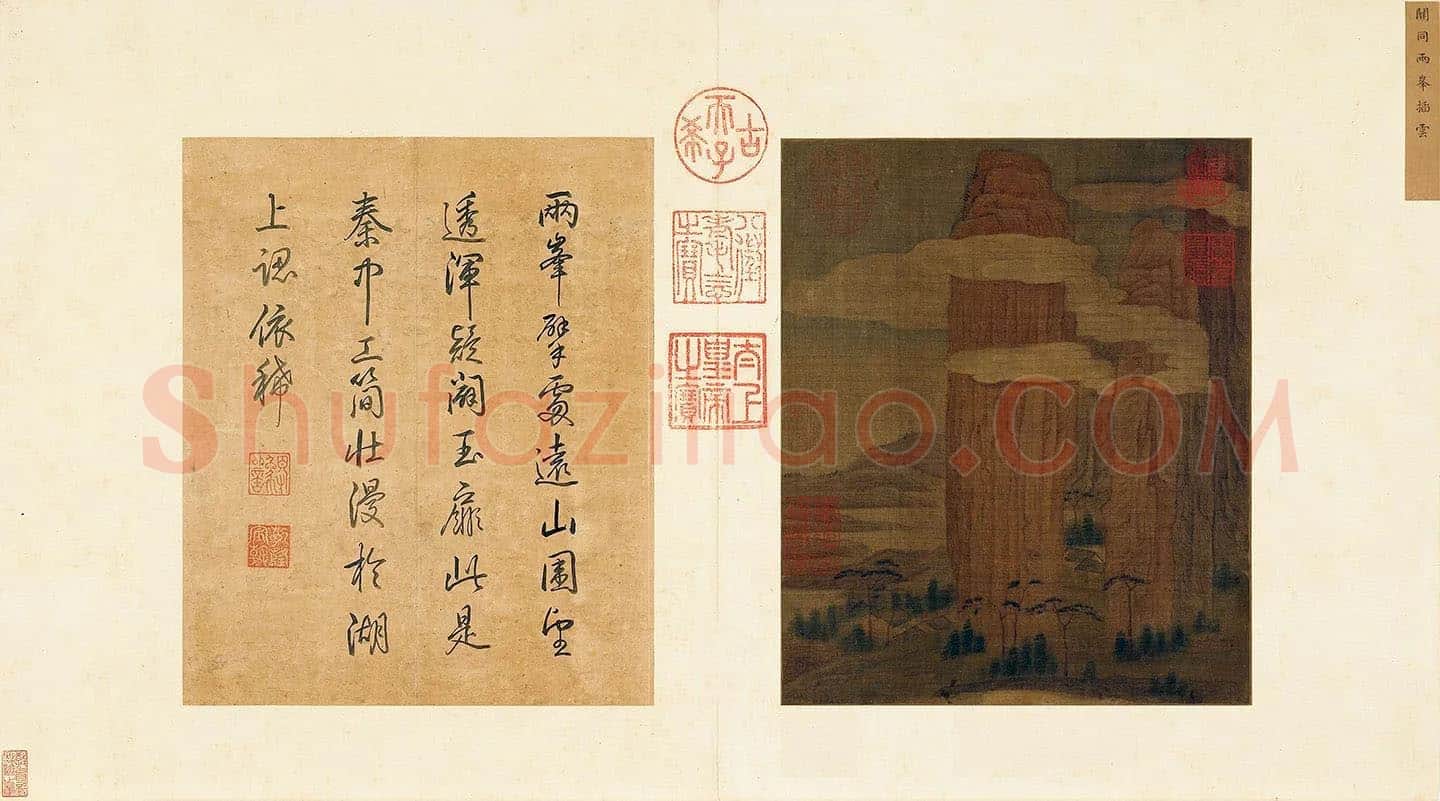 關同兩峯插雲
古希天子
八徵耄念之寶
太上皇帝之寶
兩峯擘處遠山圍望
透渾疑闢玉扉此是
秦中工簡壯漫於湖
上認依稀
Shufazihao.COM